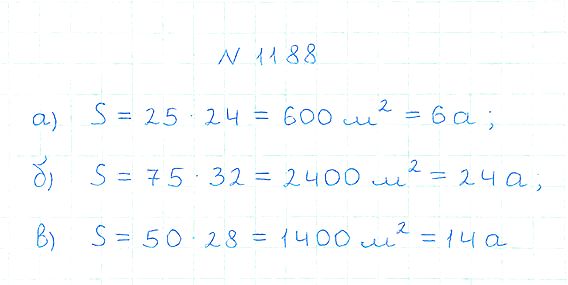 N 1188
а) S = 25 · 24 = 600 м² = 6а ;
б) S = 75 · 32 = 2400 м² = 24а ;
в) S = 50 · 28 = 1400 м² = 14а